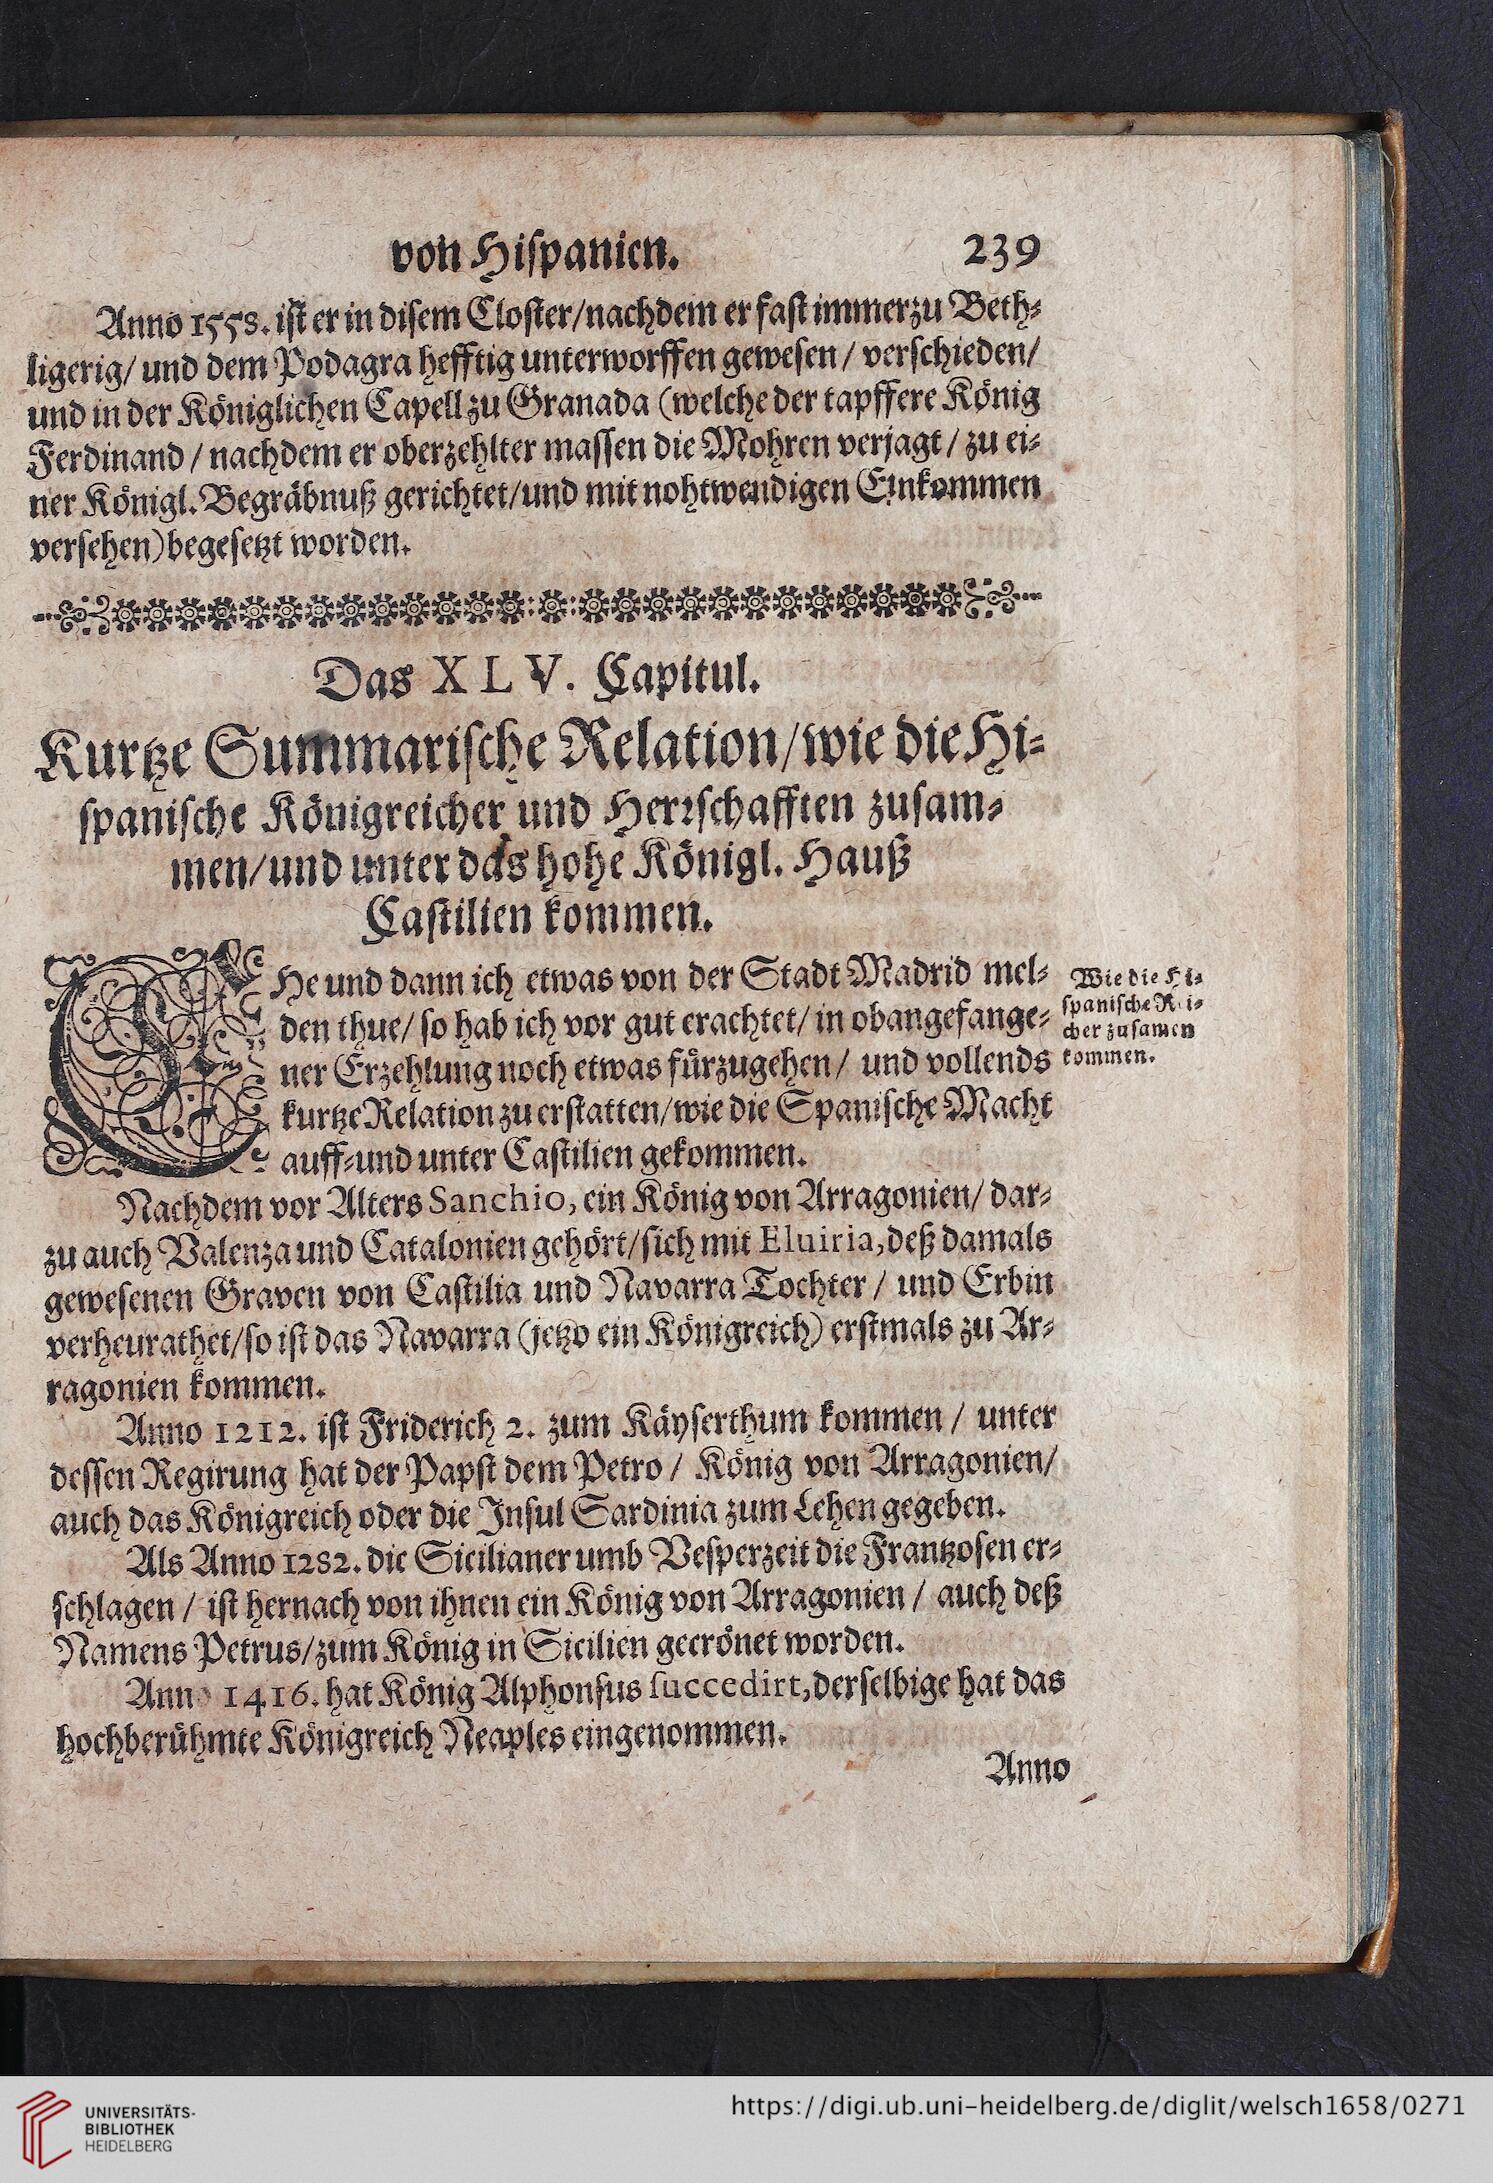 von Hiſpanien. 239
Anno 1558. iſt er in diſem Cloſter/nachdem er faſt immerzu Beth⸗
ligerig/ und dem Podagra hefftig unterworffen geweſen / verſchieden/
und in der Königlichen Capell zu Granada (welche der tapffere König
Ferdinand / nachdem er oberzehlter maſſen die Mohren verjagt / zu ei⸗
ner Königl. Begräbnuß gerichtet/und mit nohtwendigen Einkommen
verſehen) begeſetzt worden.
Das XLV. Capitul.
Kurtze Summariſche Relation/wie die Hi⸗
ſpaniſche Königreicher und Herrſchafften zuſam⸗
men/und unter das hohe Königl. Hauß
Caſtilien kommen.
EHe und dann ich etwas von der Stadt Madrid mel⸗
den thue/ ſo hab ich vor gut erachtet/ in obangefange⸗
ner Erzehlung noch etwas fürzugehen / und vollends
kurtze Relation zu erſtatten/wie die Spaniſche Macht
auff⸗und unter Caſtilien gekommen.
Wie die Hi⸗
ſpaniſche Rei⸗
cher zuſamen
kommen.
Nachdem vor Alters Sanchio, ein König von Arragonien/ dar⸗
zu auch Valenza und Catalonien gehört/ſich mit Eluiria, deß damals
geweſenen Graven von Caſtilia und Navarra Tochter / und Erbin
verheurathet/ſo iſt das Navarra (jetzo ein Königreich) erſtmals zu Ar⸗
ragonien kommen.
Anno 1212. iſt Friderich 2. zum Käyſerthum kommen / unter
deſſen Regirung hat der Papſt dem Petro / König von Arragonien/
auch das Königreich oder die Inſul Sardinia zum Lehen gegeben.
Als Anno 1282. die Sicilianer umb Veſperzeit die Frantzoſen er⸗
ſchlagen / iſt hernach von ihnen ein König von Arragonien / auch deß
Namens Petrus/zum König in Sicilien gecrönet worden.
Anno 1416. hat König Alphonſus ſuccedirt, derſelbige hat das
hochberühmte Königreich Neaples eingenommen.
Anno
UNIVERSITÄTS-
BIBLIOTHEK
HEIDELBERG
https://digi.ub.uni-heidelberg.de/diglit/welsch1658/0271